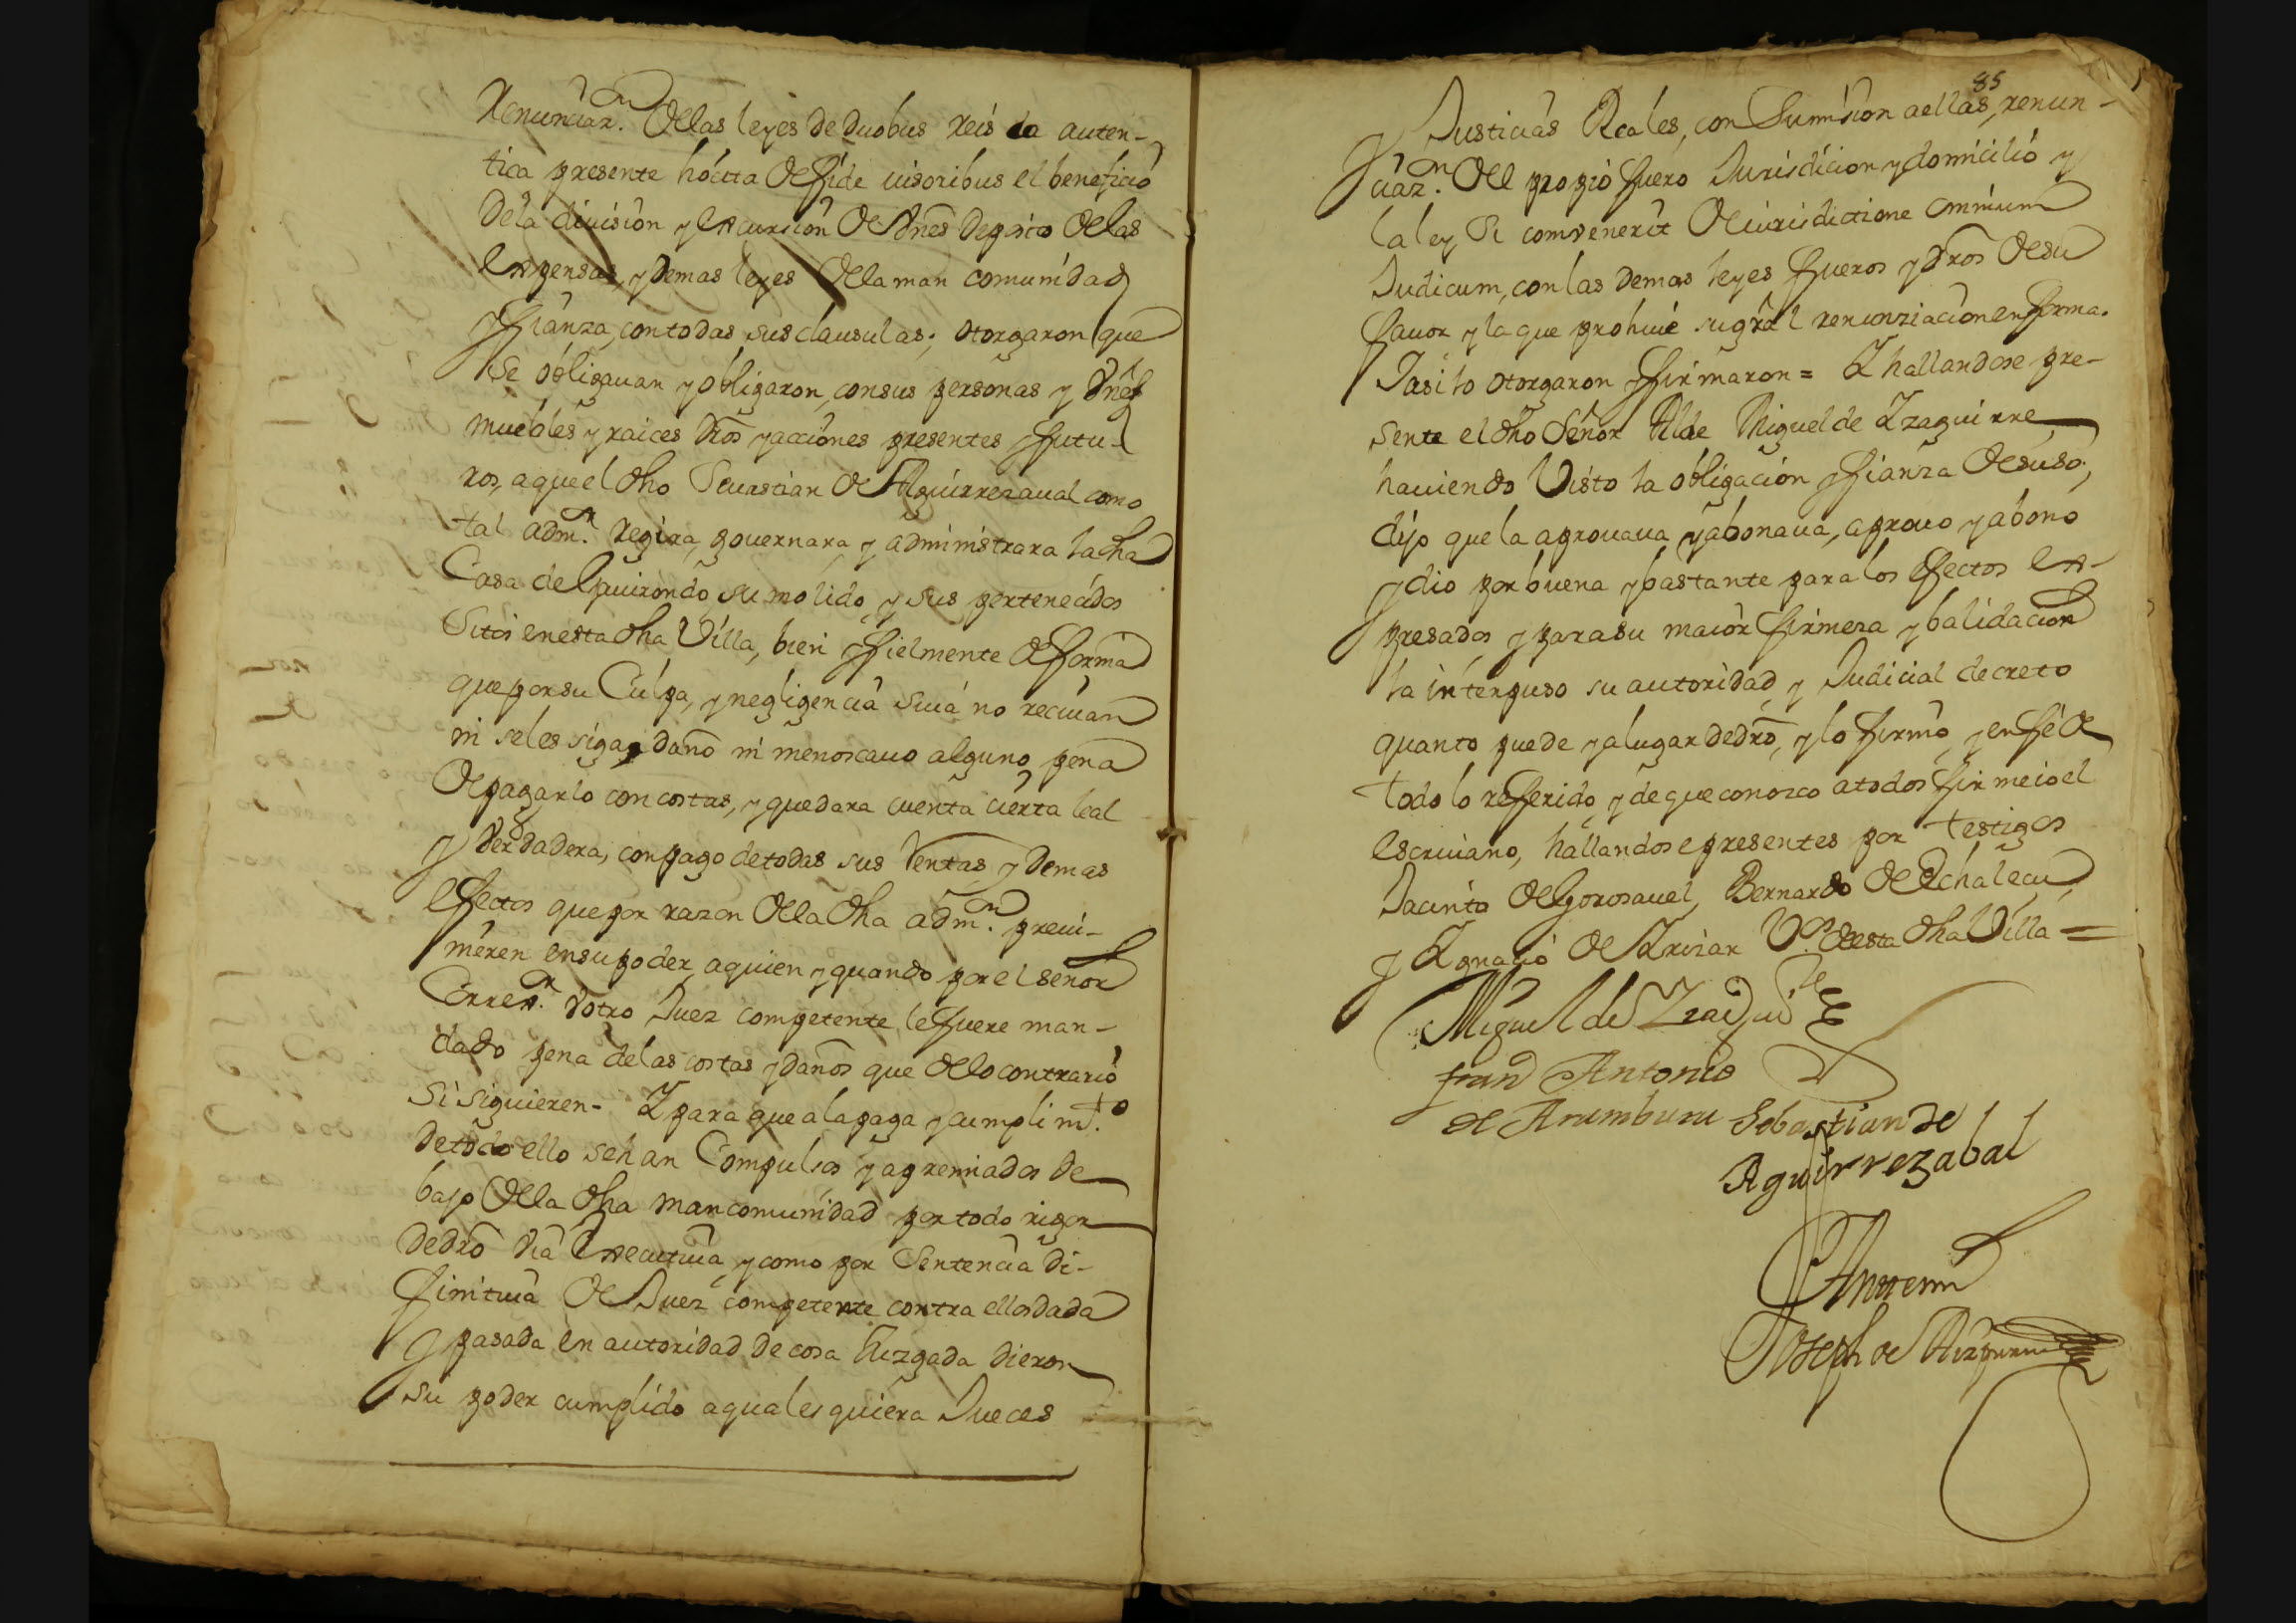 Renunciaz.n de las leyes de duobus reis la auten-
tica presente hocita de fide iusoribus el beneficio
de la diuision y excursion de vnes deposito de las
expensas, y demas leyes de la man comunidad
y fianza, con todas sus clausulas; otorgaron que
se obligauan y obligaron, con sus personas y vnes
muebles y raices dros y acciones presentes y futu-
ros, aque el dho Seuastian de Aguirrezaual como
tal adm.r regira, gouernara y administrara la dha
Casa de Eguirondo, su molido, y sus pertenecidos
Sitos en esta dha Villa, bien y fielmente de forma
que por su Culpa, y negligencia suia no reciuan
ni se les siga daño ni menoscauo alguno, pena
de pagarlo con costas, y que dara cuenta cierta leal
y verdadera, con pago de todas sus Rentas y demas
efectos que por razon de la dha adm.n preui-
nieren en su poder, a quien y quando por el señor
Corre.r v otro Juez competente le fuere man-
dado pena de las costas y daños que de lo contrario
si siguieren - Y para que a la paga y cumplim.to
de todo ello sehan Compulsos y apremiados de
bajo de la dha mancomunidad por todo rigor
de dro via executiua, y como por Sentencia di-
finitiua de Juez competente contra ellos dada
y pasada en autoridad de cosa Juzgada dieron
su poder cumplido a qualesquiera Jueces
85
y Justicias Reales, con Sumision a ellas, renun-
ciaz.n del propio fuero Jurisdicion y domicilio y
la ley Si comvenerit de iurisdictione omnium
Judicum, con las demas leyes fueros y dros de su
fauor y la que prohiue su gral renunziacion en forma.
Y asi lo otorgaron y firmaron = Y hallandose pre-
sente el dho Señor Alde Miguel de Yzaguirre,
hauiendo Visto la obligacion y fianza de suso,
dijo que la aprouaua y abonaua, aprouo y abono
y dio por buena y bastante para los efectos ex-
presados, y para su maior firmeza y balidacion
la interpuso su autoridad, y Judicial decreto
quanto puede y a lugar de dro, y lo firmo, y en fe de
todo lo referido, y de que conozco a todos firme io el
escriuano, hallandose presentes por testigos
Jacinto de Gorosauel, Bernardo de Echalecu,
y Ygnacio de Yrizar V.os de esta dha Villa =
Miguel de Yzaguirre
fran.co Antonio
de Aramburu Sebastian de
Aguirrezabal
Antemi
Joseph de Aizpuru